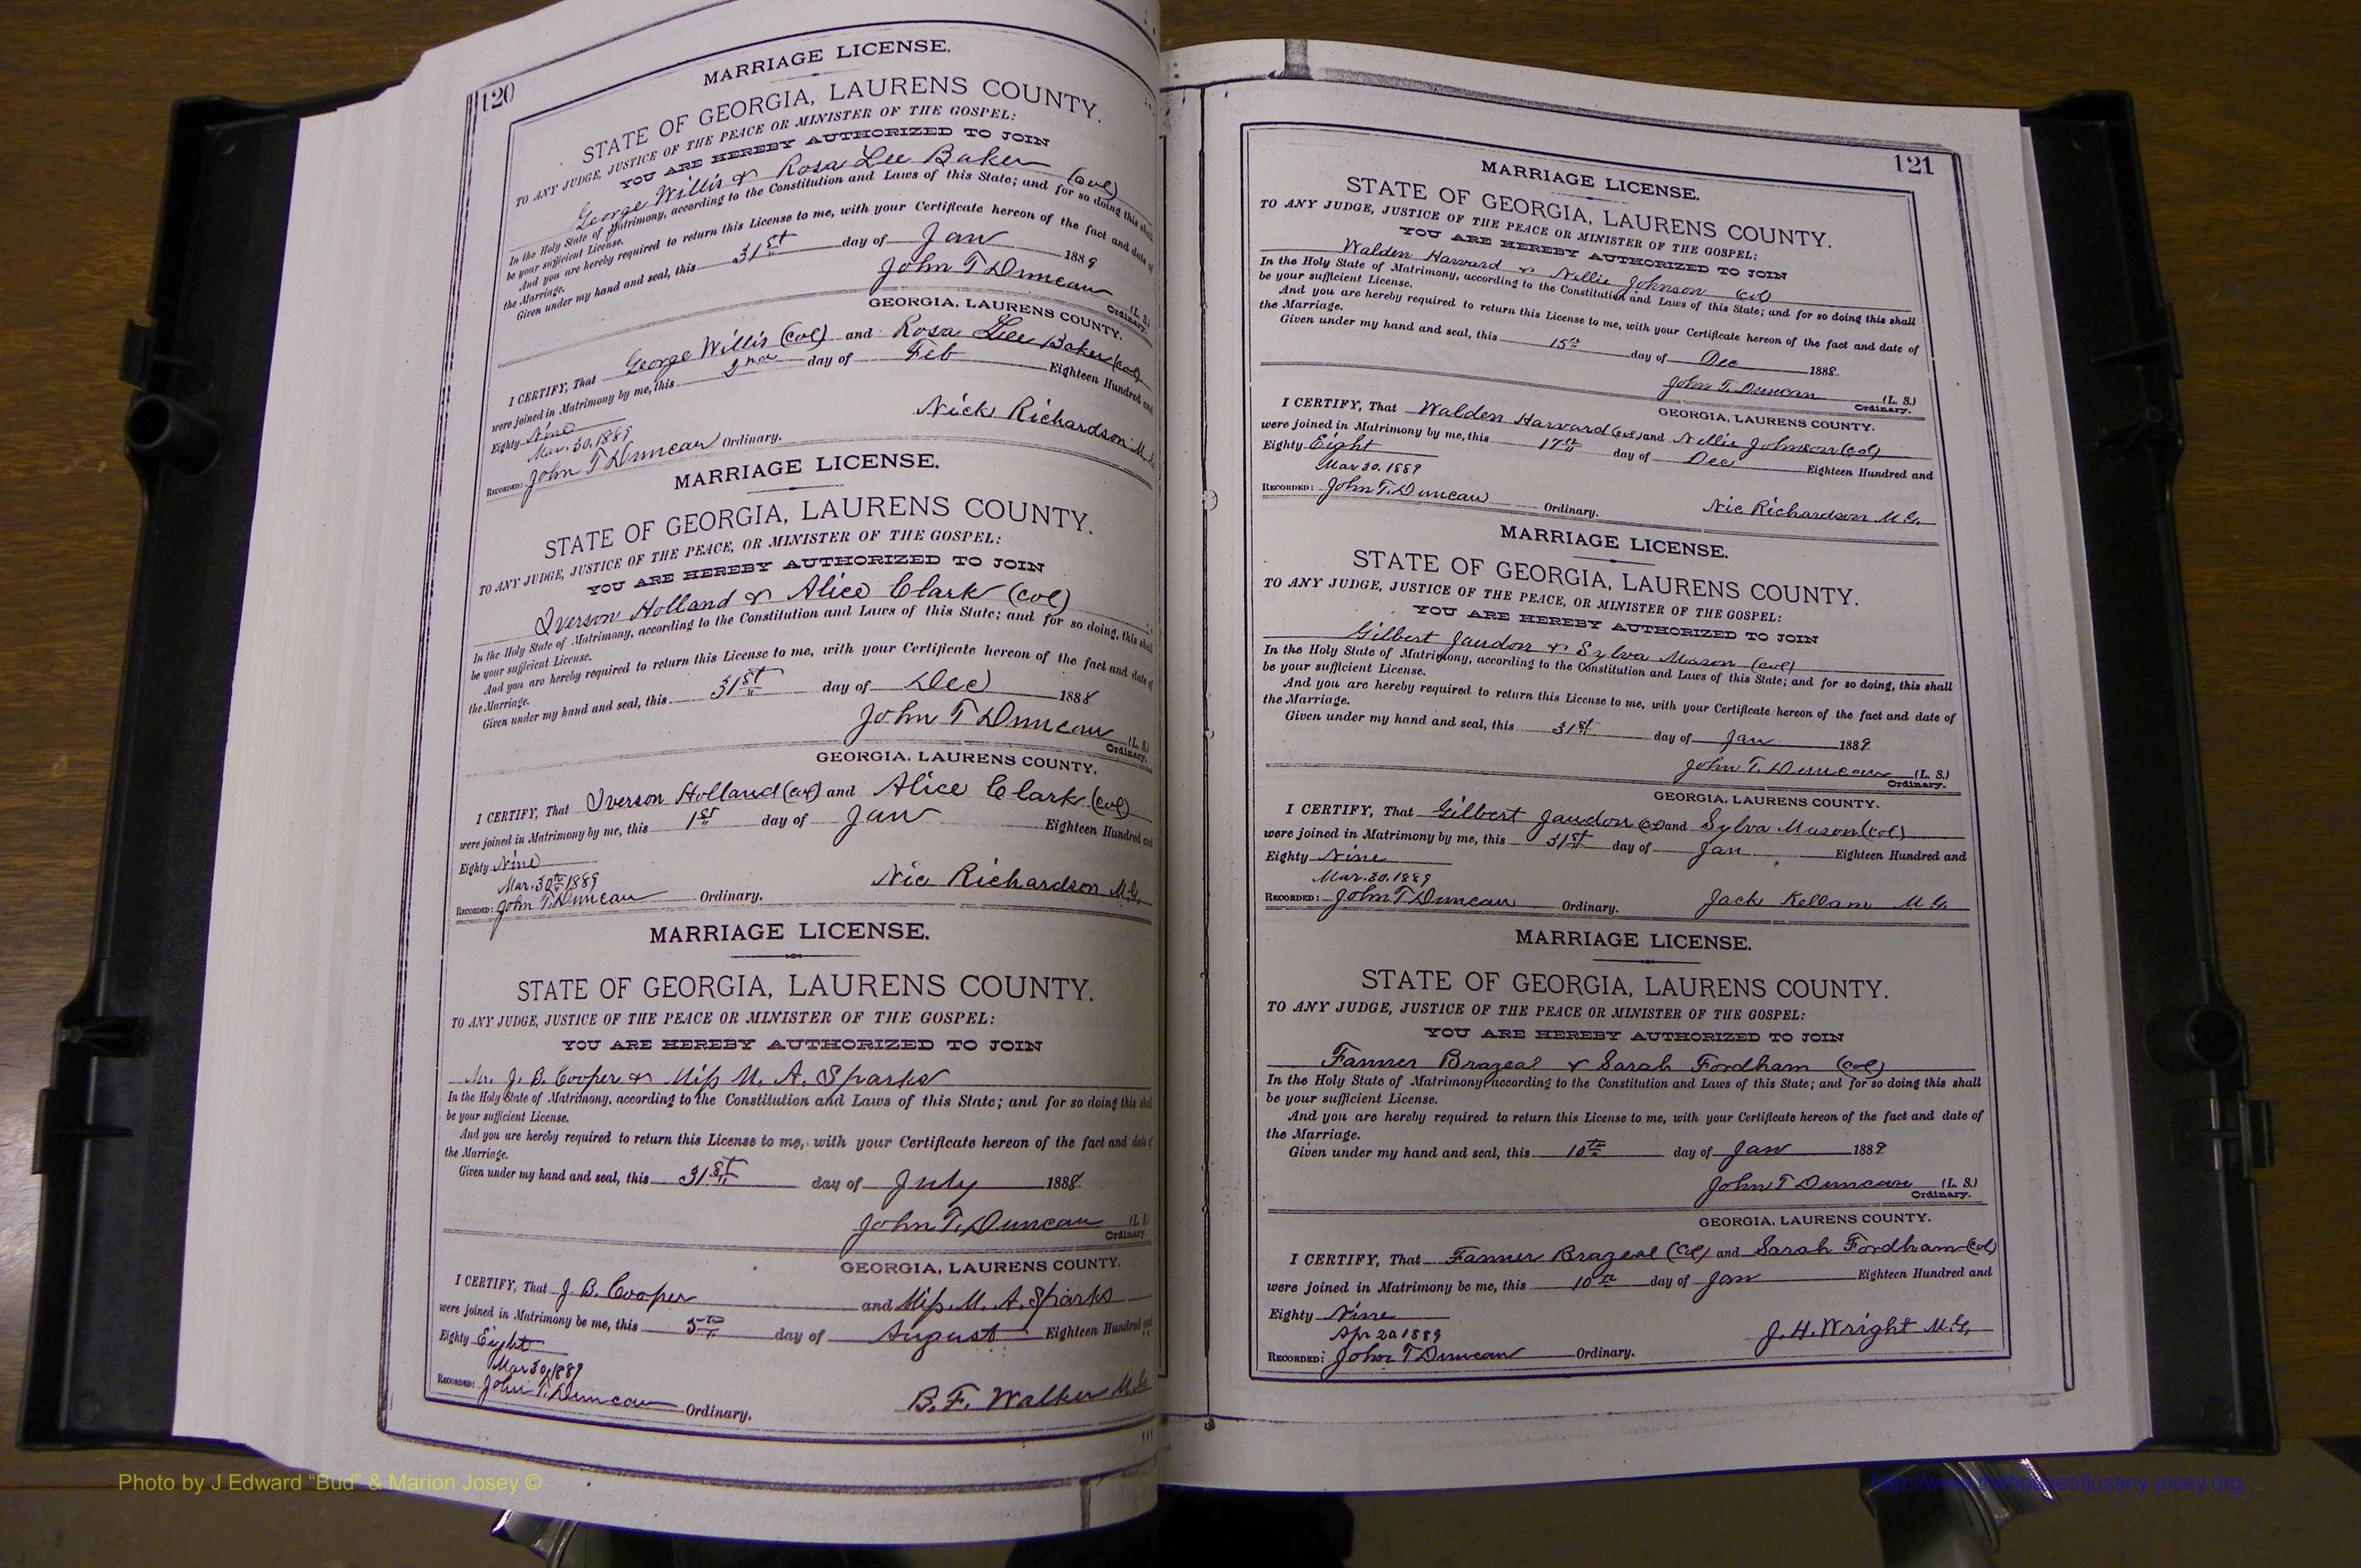 120
MARRIAGE LICENSE.
STATE OF GEORGIA, LAURENS COUNTY.
TO ANY JUDGE, JUSTICE OF THE PEACE OR MINISTER OF THE GOSPEL:
YOU ARE HEREBY AUTHORIZED TO JOIN
George Willis & Rosa Lee Baker (Col)
In the Holy State of Matrimony, according to the Constitution and Laws of this State; and for so doing this shall
be your sufficient License.
And you are hereby required to return this License to me, with your Certificate hereon of the fact and date of
the Marriage.
Given under my hand and seal, this 31st day of Jan 1889
John T Duncan (L. S.)
Ordinary.
GEORGIA, LAURENS COUNTY.
I CERTIFY, That George Willis (Col) and Rosa Lee Baker (Col)
were joined in Matrimony by me, this 2nd day of Feb Eighteen Hundred and
Eighty Nine
Mar. 30. 1889
Nick Richardson M.G.
RECORDED: John T Duncan Ordinary.
MARRIAGE LICENSE.
STATE OF GEORGIA, LAURENS COUNTY.
TO ANY JUDGE, JUSTICE OF THE PEACE, OR MINISTER OF THE GOSPEL:
YOU ARE HEREBY AUTHORIZED TO JOIN
Iverson Holland & Alice Clark (Col)
In the Holy State of Matrimony, according to the Constitution and Laws of this State; and for so doing, this shall
be your sufficient License.
And you are hereby required to return this License to me, with your Certificate hereon of the fact and date of
the Marriage.
Given under my hand and seal, this 31st day of Dec 1888
John T Duncan (L. S.)
Ordinary.
GEORGIA, LAURENS COUNTY.
I CERTIFY, That Iverson Holland (Col) and Alice Clark (Col)
were joined in Matrimony by me, this 1st day of Jan Eighteen Hundred and
Eighty Nine
Mar. 30th 1889
Nic Richardson M.G.
RECORDED: John T. Duncan Ordinary.
MARRIAGE LICENSE.
STATE OF GEORGIA, LAURENS COUNTY.
TO ANY JUDGE, JUSTICE OF THE PEACE OR MINISTER OF THE GOSPEL:
YOU ARE HEREBY AUTHORIZED TO JOIN
Mr. J. B. Cooper & Miss M. A. Sparks
In the Holy State of Matrimony, according to the Constitution and Laws of this State; and for so doing this shall
be your sufficient License.
And you are hereby required to return this License to me, with your Certificate hereon of the fact and date of
the Marriage.
Given under my hand and seal, this 31st day of July 1888
John T. Duncan (L. S.)
Ordinary.
GEORGIA, LAURENS COUNTY.
I CERTIFY, That J. B. Cooper and Miss. M. A. Sparks
were joined in Matrimony be me, this 5th day of August Eighteen Hundred and
Eighty Eight
Mar 30, 1889
B. F. Walker M.G.
RECORDED: John T. Duncan Ordinary.
121
MARRIAGE LICENSE.
STATE OF GEORGIA, LAURENS COUNTY.
TO ANY JUDGE, JUSTICE OF THE PEACE OR MINISTER OF THE GOSPEL:
YOU ARE HEREBY AUTHORIZED TO JOIN
Walden Harvard & Nellie Johnson Col
In the Holy State of Matrimony, according to the Constitution and Laws of this State; and for so doing this shall
be your sufficient License.
And you are hereby required to return this License to me, with your Certificate hereon of the fact and date of
the Marriage.
Given under my hand and seal, this 15th day of Dec 1888
John T. Duncan (L. S.)
Ordinary.
GEORGIA, LAURENS COUNTY.
I CERTIFY, That Walden Harvard (Col) and Nellie Johnson (Col)
were joined in Matrimony by me, this 17th day of Dec Eighteen Hundred and
Eighty Eight
Mar 30. 1889
RECORDED: John T. Duncan Ordinary.
Nic Richardson M.G.
MARRIAGE LICENSE.
STATE OF GEORGIA, LAURENS COUNTY.
TO ANY JUDGE, JUSTICE OF THE PEACE, OR MINISTER OF THE GOSPEL:
YOU ARE HEREBY AUTHORIZED TO JOIN
Gilbert Jaudon & Sylva Mason (Col)
In the Holy State of Matrimony, according to the Constitution and Laws of this State; and for so doing, this shall
be your sufficient License.
And you are hereby required to return this License to me, with your Certificate hereon of the fact and date of
the Marriage.
Given under my hand and seal, this 31st day of Jan 1889
John T. Duncan (L. S.)
Ordinary.
GEORGIA, LAURENS COUNTY.
I CERTIFY, That Gilbert Jaudon (Col) and Sylva Mason (Col)
were joined in Matrimony by me, this 31st day of Jan Eighteen Hundred and
Eighty Nine
Mar. 30. 1889
RECORDED: John T Duncan Ordinary. Jack Kellam M.G.
MARRIAGE LICENSE.
STATE OF GEORGIA, LAURENS COUNTY.
TO ANY JUDGE, JUSTICE OF THE PEACE OR MINISTER OF THE GOSPEL:
YOU ARE HEREBY AUTHORIZED TO JOIN
Fanner Brazeal & Sarah Fordham (Col)
In the Holy State of Matrimony, according to the Constitution and Laws of this State; and for so doing this shall
be your sufficient License.
And you are hereby required to return this License to me, with your Certificate hereon of the fact and date of
the Marriage.
Given under my hand and seal, this 10th day of Jan 1889
John T Duncan (L. S.)
Ordinary.
GEORGIA, LAURENS COUNTY.
I CERTIFY, That Fanner Brazeal (Col) and Sarah Fordham (Col)
were joined in Matrimony be me, this 10th day of Jan Eighteen Hundred and
Eighty Nine
Apr 20 1889
J. H. Wright M.G.
RECORDED: John T Duncan Ordinary.
Photo by J Edward “Bud” & Marion Josey ©
http://www.thehouseofjossey-josey.org